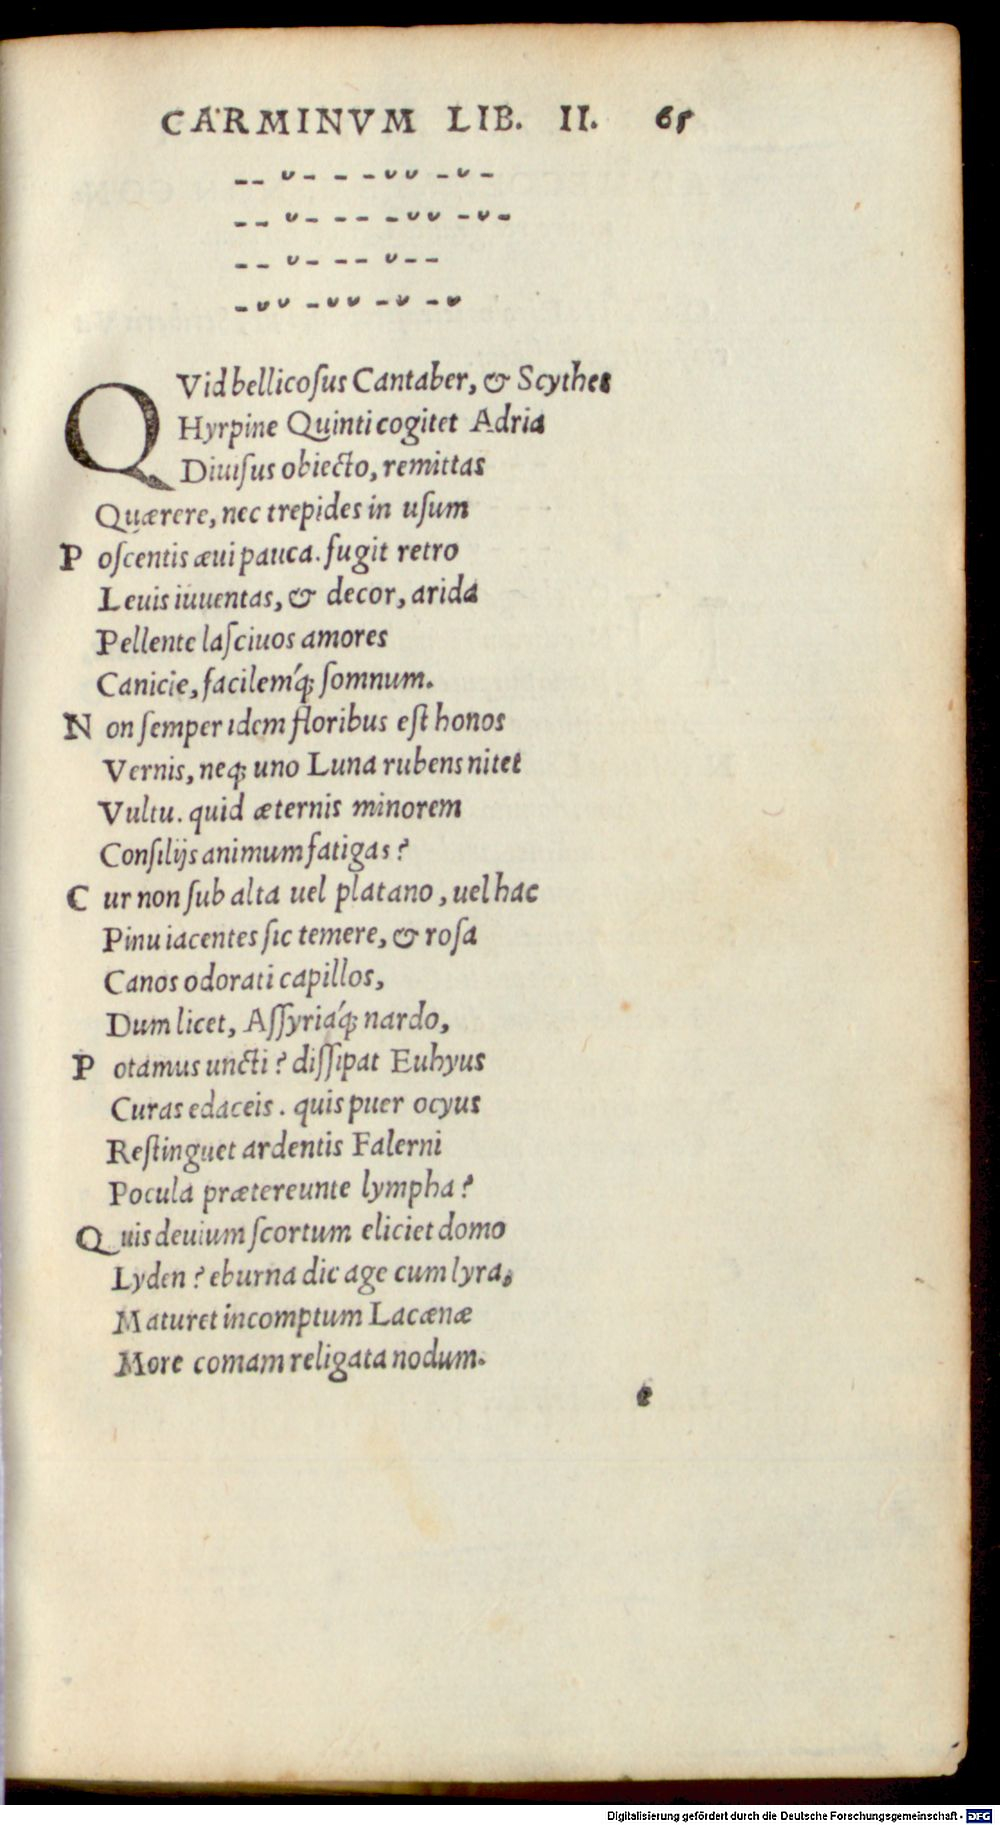 CARMINVM LIB. II. 65
– – ᴗ – – – ᴗ ᴗ – ᴗ –
– – ᴗ – – – – ᴗ ᴗ – ᴗ –
– – ᴗ – – – ᴗ – –
– ᴗ ᴗ – ᴗ ᴗ – ᴗ – ᴗ
QVid bellicoſus Cantaber, & Scythes
Hyrpine Quinti cogitet Adria
Diuiſus obiecto, remittas
Quærere, nec trepides in uſum
P oſcentis æui pauca. fugit retro
Leuis iuuentas, & decor, arida
Pellente laſciuos amores
Canicie, facilemq́; ſomnum.
N on ſemper idem floribus eſt honos
Vernis, neq; uno Luna rubens nitet
Vultu. quid æternis minorem
Conſilijs animum fatigas?
C ur non ſub alta uel platano, uel hac
Pinu iacentes ſic temere, & roſa
Canos odorati capillos,
Dum licet, Aſſyriaq́; nardo,
P otamus uncti? diſſipat Euhyus
Curas edaceis. quis puer ocyus
Reſtinguet ardentis Falerni
Pocula prætereunte lympha?
Q uis deuium ſcortum eliciet domo
Lyden? eburna dic age cum lyra,
Maturet incomptum Lacænæ
More comam religata nodum.
e
Digitalisierung gefördert durch die Deutsche Forschungsgemeinschaft - DFG